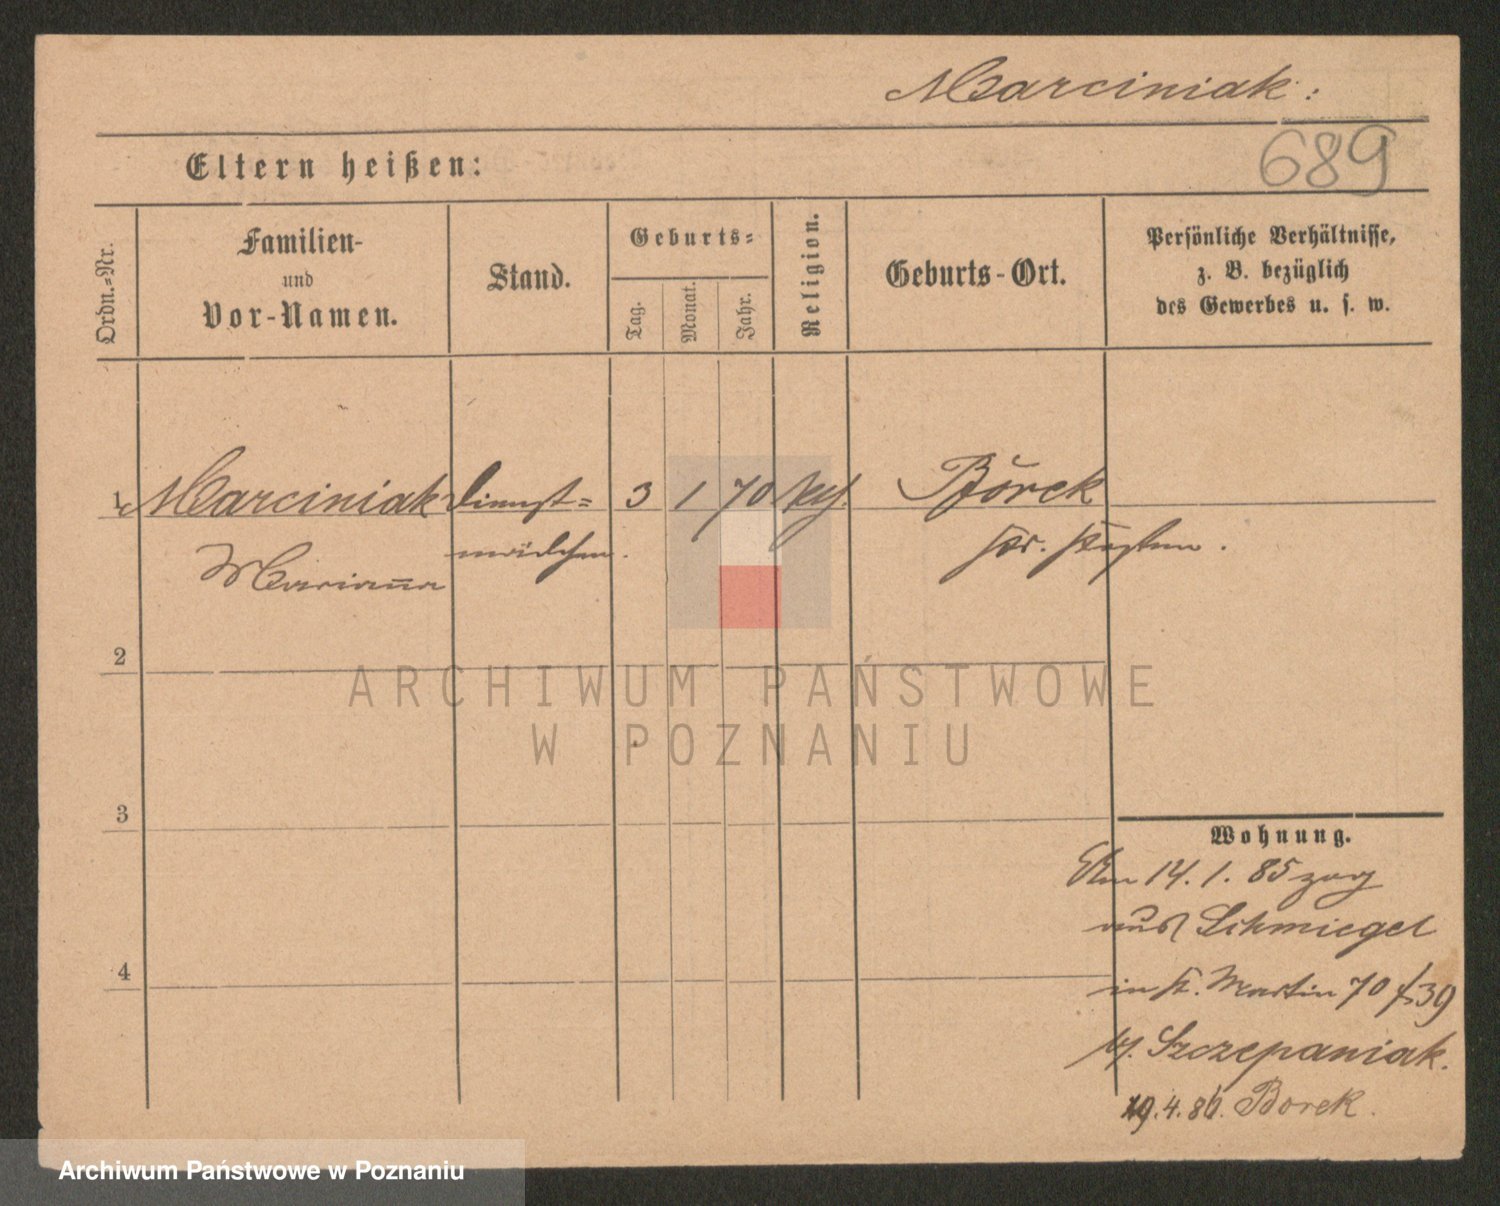 Marciniak.
689
Eltern heißen:
Ordn.-Nr.
Familien-
und
Vor-Namen.
Stand.
Geburts-
Tag.
Monat.
Jahr.
Religion.
Geburts-Ort.
Persönliche Verhältnisse,
z. B. bezüglich
des Gewerbes u. s. w.
1 Marciniak Dienst= 3 1 70 Borek
Marianna mädchen. Kr.
2
3
4
Wohnung.
Am 14. 1. 85 zog
aus Schmiegel
in St. Martin 70
Szczepaniak.
19.4.86. Borek.
ARCHIWUM PAŃSTWOWE
W POZNANIU
Archiwum Państwowe w Poznaniu